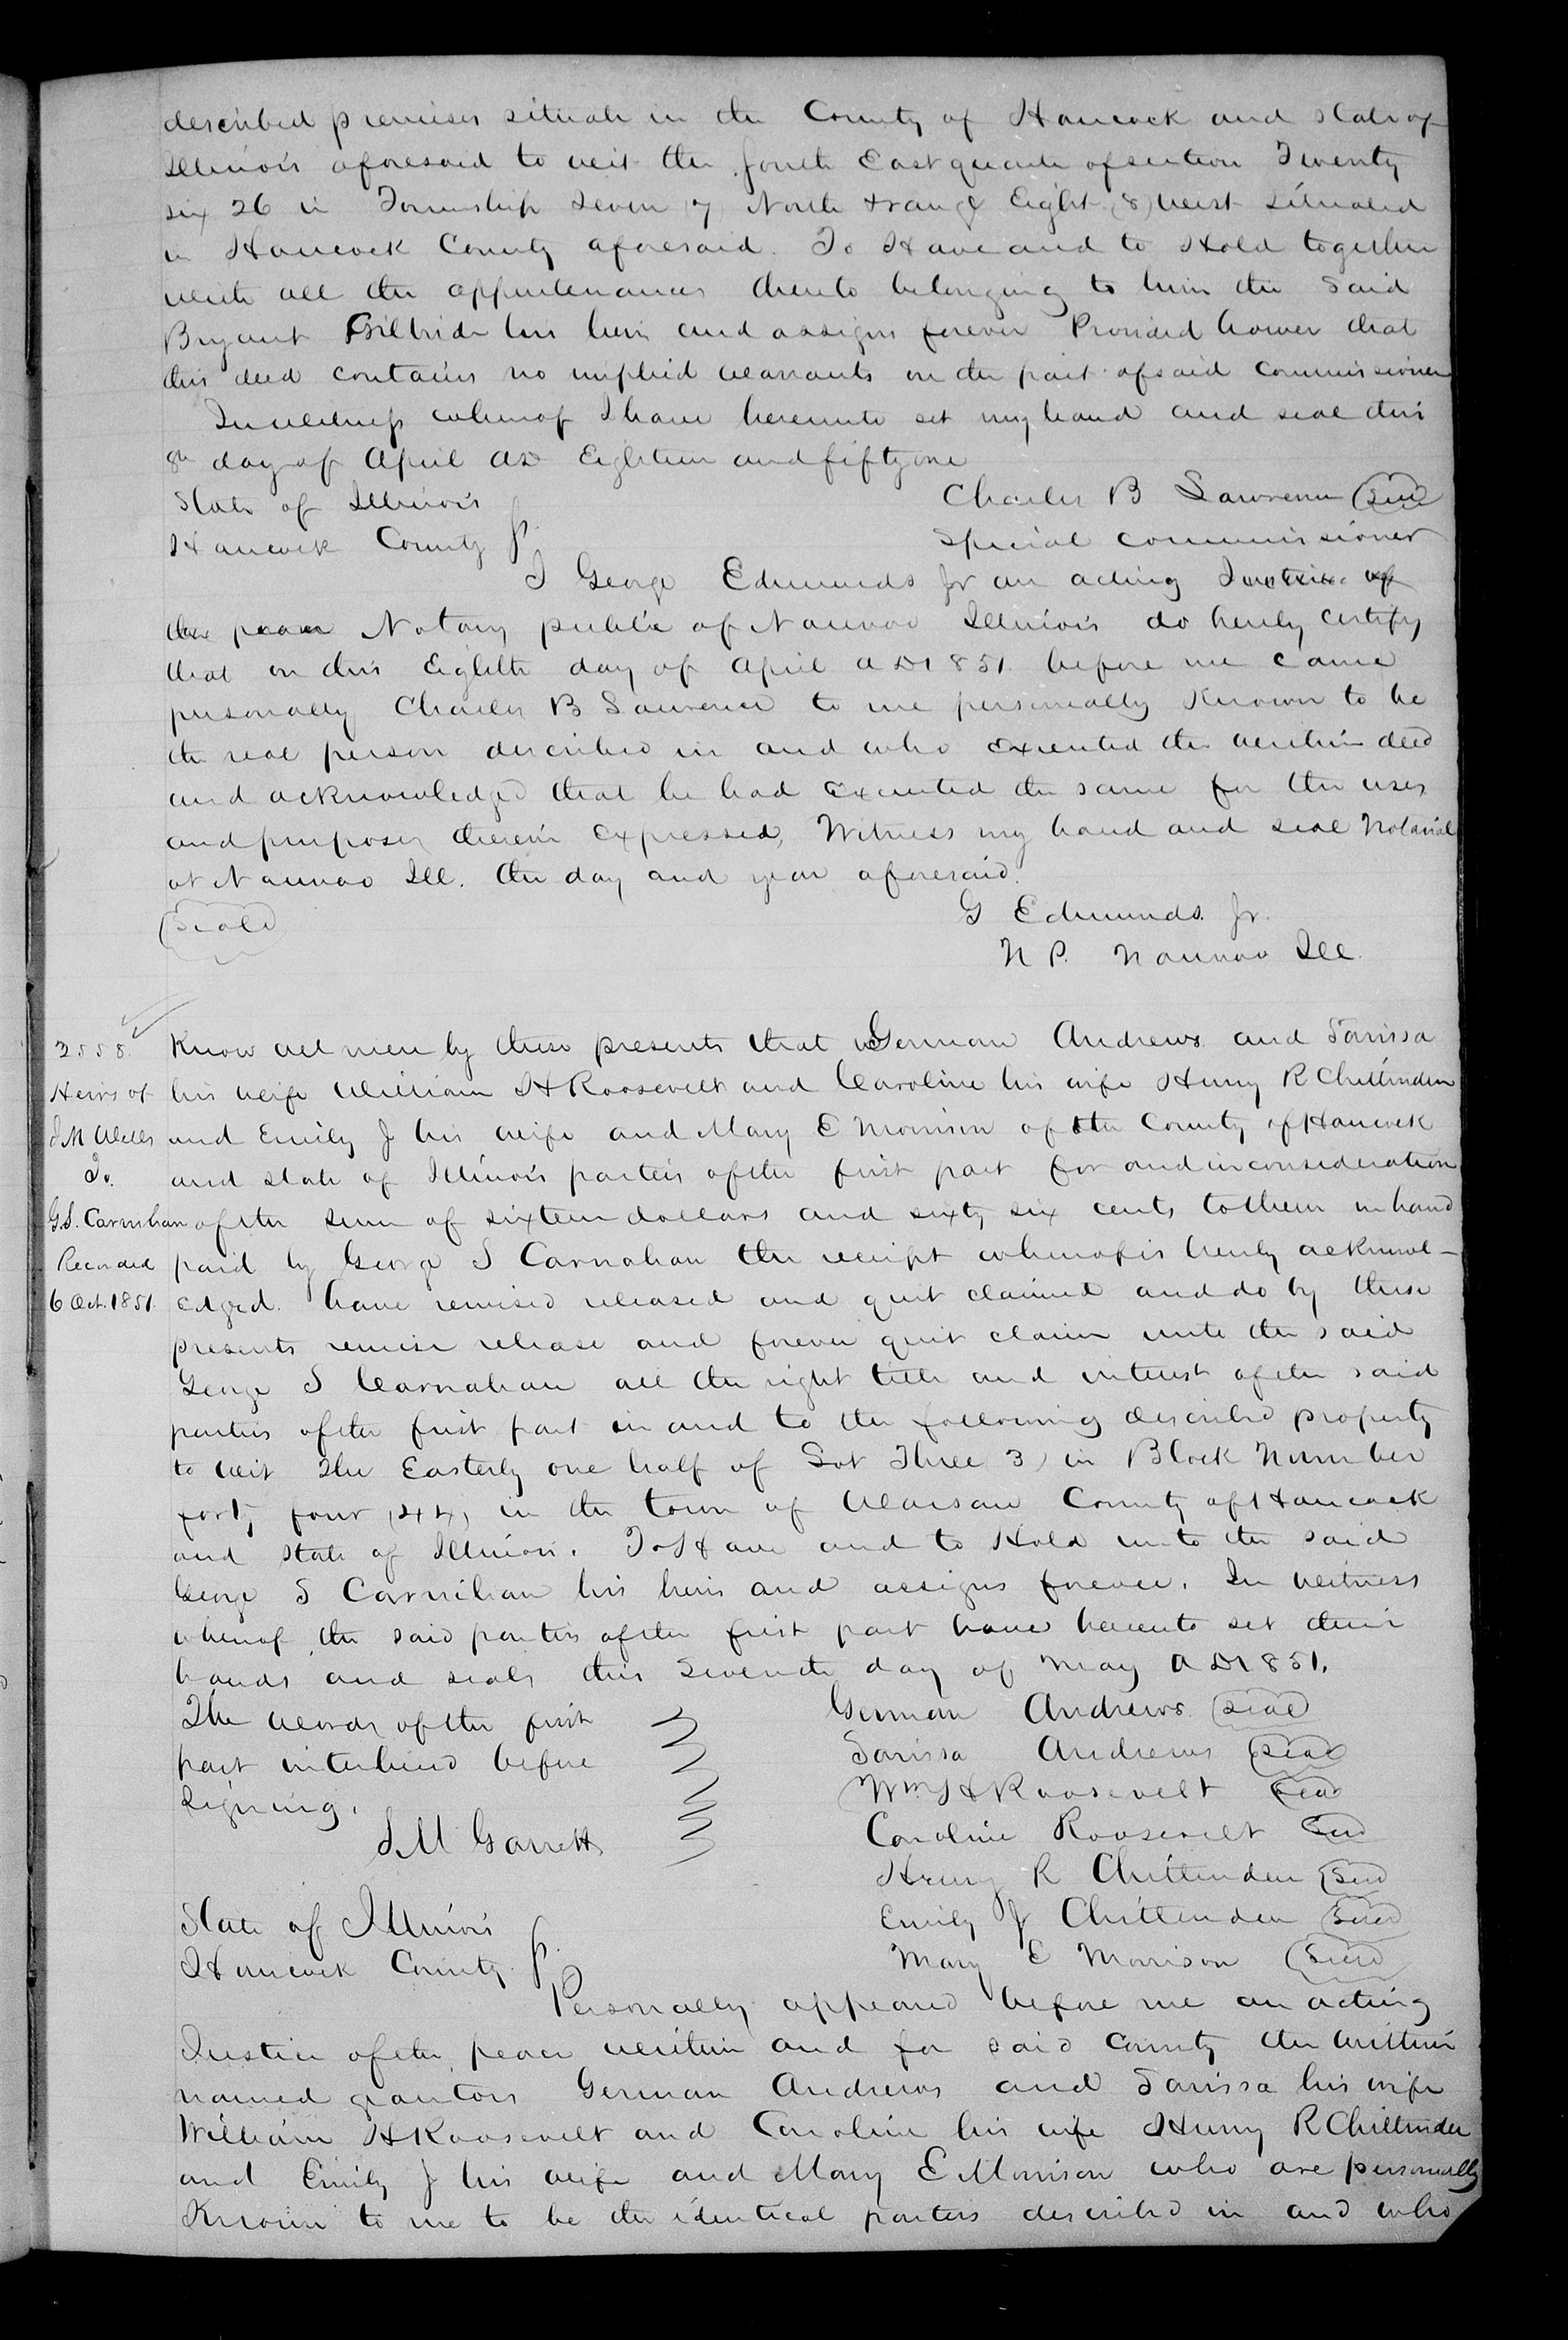 described premises situate in the County of Hancock and state of
Illinois aforesaid to wit the South East quarter of section Twenty
six 26 in Township Seven (7) North & range Eight (8) West situated
in Hancock County aforesaid. To Have and to Hold together
with all the appurtenances thereto belonging to him the said
Bryant Gilbride his heirs and assigns forever Provided however that
this deed contains no implied warrants on the part of said commissioner
In witness whereof I have hereunto set my hand and seal this
8th day of April AD Eighteen and fifty one
Charles B Lawrence (Seal)
State of Illinois
Hancock County ss.
special commissioner
I George Edmunds Jr an acting Justice of
the peace Notary public of Nauvoo Illinois do hereby certify
that on this Eighth day of April AD 1851. before me came
personally Charles B Lawrence to me personally Known to be
the real person described in and who executed the within deed
and acknowledged that he had executed the same for the uses
and purposes therein expressed, Witness my hand and seal Notarial
at Nauvoo Ill. the day and year aforesaid.
(Seal)
G Edmunds. Jr.
N P. Nauvoo Ill.
2558.
Heirs of
J M Wells
To.
G.S. Carnahan
Recorded
6 Oct. 1851.
Know all men by these presents that German Andrews and Tarissa
his wife William H Roosevelt and Caroline his wife Henry R Chittenden
and Emily J his wife and Mary E Morrison of the County of Hancock
and state of Illinois parties of the first part for and in consideration
of the sum of sixteen dollars and sixty six cents to them in hand
paid by George S Carnahan the receipt whereof is hereby acknowl-
edged. have remised released and quit claimed and do by these
presents remise release and forever quit claim unto the said
George S Carnahan all the right title and interest of the said
parties of the first part in and to the following described property
to wit The Easterly one half of Lot Three 3) in Block Number
forty four (44) in the town of Warsaw County of Hancock
and state of Illinois. To Have and to Hold unto the said
George S Carnihan his heirs and assigns forever. In witness
whereof the said parties of the first part have hereunto set their
hands and seals this Seventh day of May AD 1851.
The words of the first
part interlined before
signing.
J M Garrett
German Andrews (seal)
Tarissa Andrews (seal)
Wm H Roosevelt (seal)
Caroline Roosevelt (seal)
Henry R Chittenden (seal)
Emily J Chittenden (seal)
Mary E Morrison (seal)
State of Illinois
Hancock County ss.
Personally appeared before me an acting
Justice of the peace within and for said County the within
named grantors German Andrews and Tarissa his wife
William H Roosevelt and Caroline his wife Henry R Chittenden
and Emily J his wife and Mary E Morrison who are personally
Known to me to be the identical parties described in and who